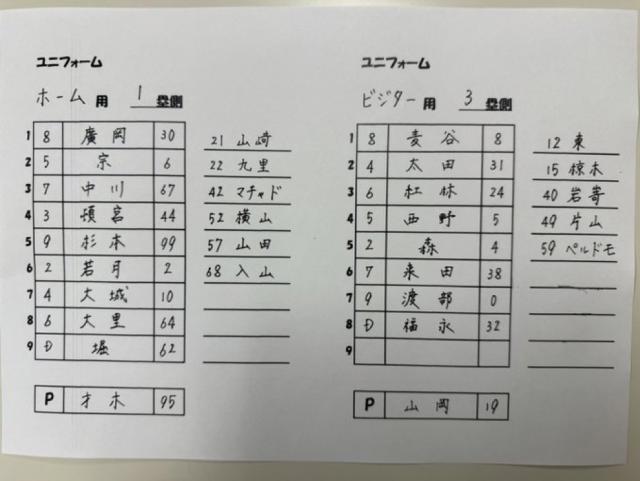 ユニフォーム
ホーム 用 1 塁側
1 8 廣岡 30
2 5 宗 6
3 7 中川 67
4 3 頓宮 44
5 9 杉本 99
6 2 若月 2
7 4 大城 10
8 6 大里 64
9 D 堀 62
P 才木 95
21 山﨑
22 九里
42 マチャド
52 横山
57 山田
68 入山
ユニフォーム
ビジター 用 3 塁側
1 8 麦谷 8
2 4 太田 31
3 6 紅林 24
4 5 西野 5
5 2 森 4
6 7 来田 38
7 9 渡部 0
8 D 福永 32
9
P 山岡 19
12 東
15 椋木
40 岩嵜
49 片山
59 ペルドモ